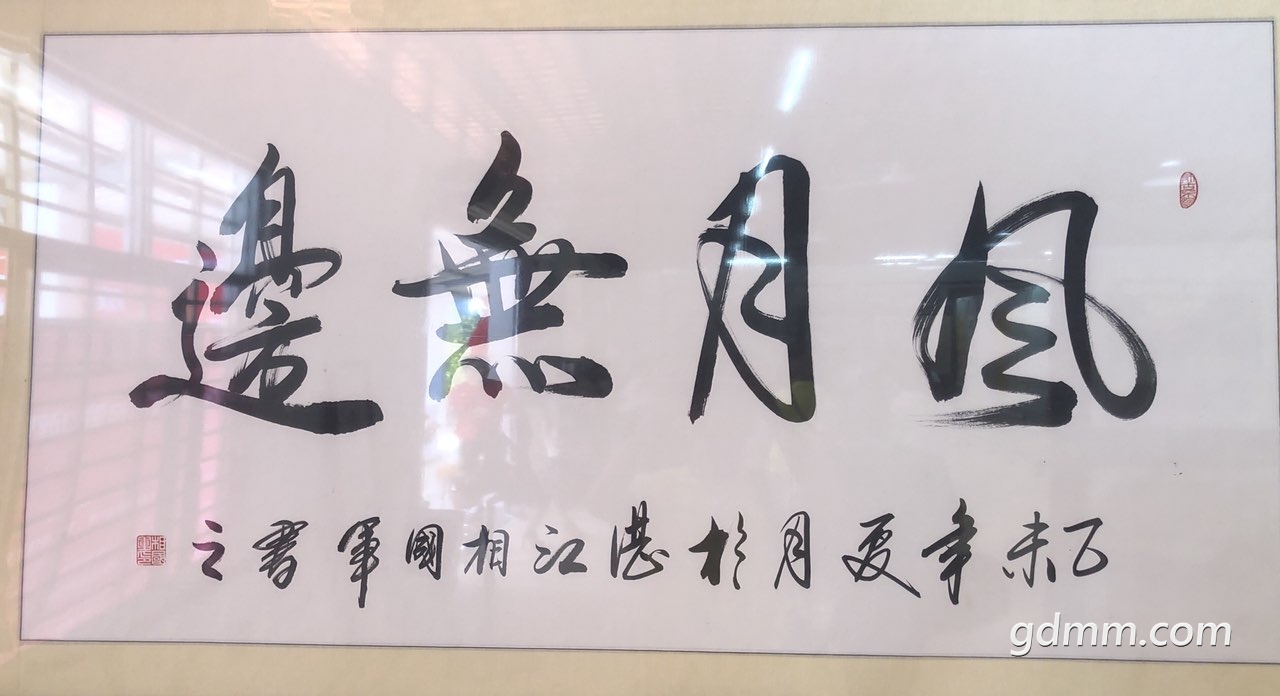 風月無邊
乙未年夏月於湛江相國軍書之
gdmm.com